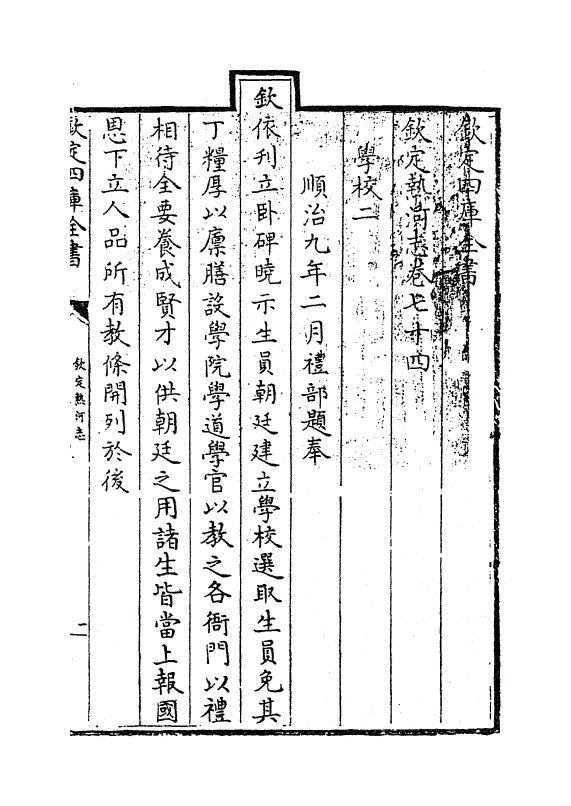 欽定四庫全書
欽定熱河志卷七十四
學校二
順治九年二月禮部題奉
欽依刋立卧碑曉示生員朝廷建立學校選取生員免其
丁糧厚以廩膳設學院學道學官以教之各衙門以禮
相待全要養成賢才以供朝廷之用諸生皆當上報國
恩下立人品所有教條開列於後
欽定四庫全書
欽定熱河志
二